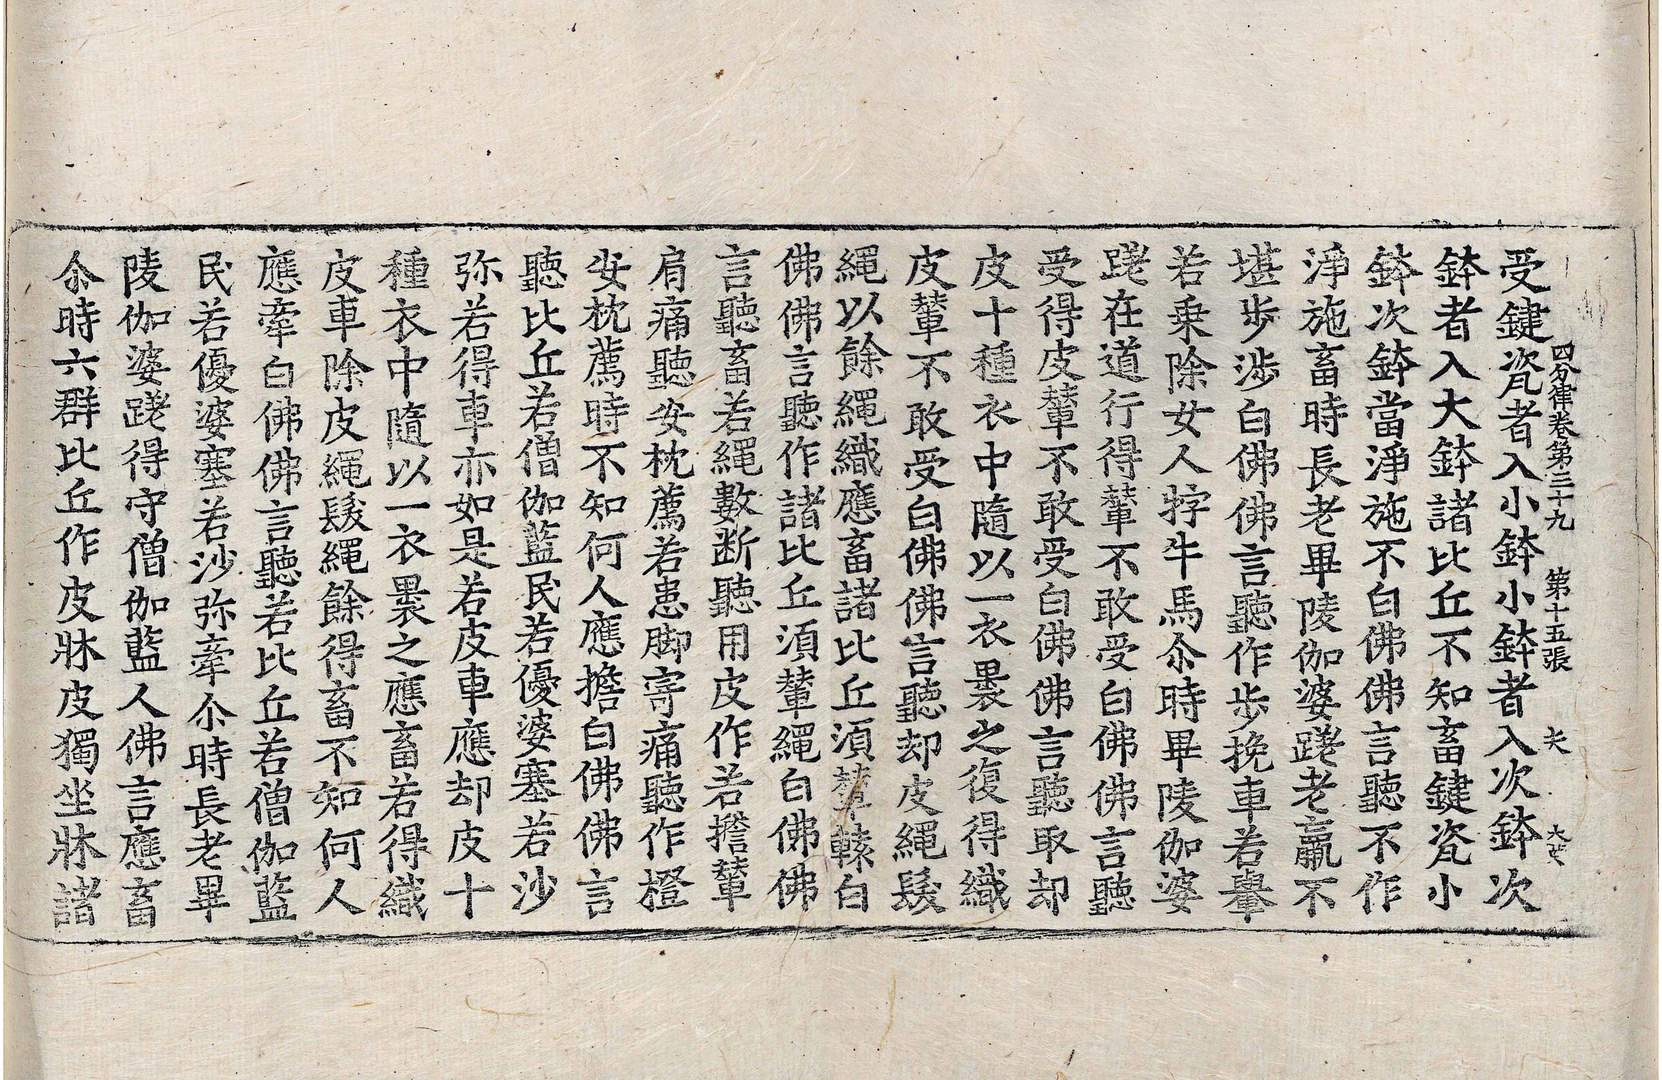 四分律卷第三十九 第十五張
受鍵瓷者入小鉢小鉢者入次鉢次
鉢者入大鉢諸比丘不知畜鍵瓷小
鉢次鉢當淨施不白佛佛言聽不作
淨施畜時長老畢陵伽婆蹉老羸不
堪步涉白佛佛言聽作步挽車若轝
若乘除女人牸牛馬尒時畢陵伽婆
蹉在道行得輦不敢受白佛佛言聽
受得皮輦不敢受白佛佛言聽取却
皮十種衣中隨以一衣褁之復得織
皮輦不敢受白佛佛言聽却皮繩髮
繩以餘繩織應畜諸比丘湏輦轅白
佛佛言聽作諸比丘湏輦繩白佛佛
言聽畜若繩數断聽用皮作若擔輦
肩痛聽安枕薦若患脚𮎰痛聽作橙
安枕薦時不知何人應擔白佛佛言
聽比丘若僧伽藍民若優婆塞若沙
弥若得車亦如是若皮車應却皮十
種衣中隨以一衣褁之應畜若得織
皮車除皮繩髮繩餘得畜不知何人
應牽白佛佛言聽若比丘若僧伽藍
民若優婆塞若沙弥牽尒時長老畢
陵伽婆蹉得守僧伽藍人佛言應畜
尒時六群比丘作皮牀皮獨坐牀諸